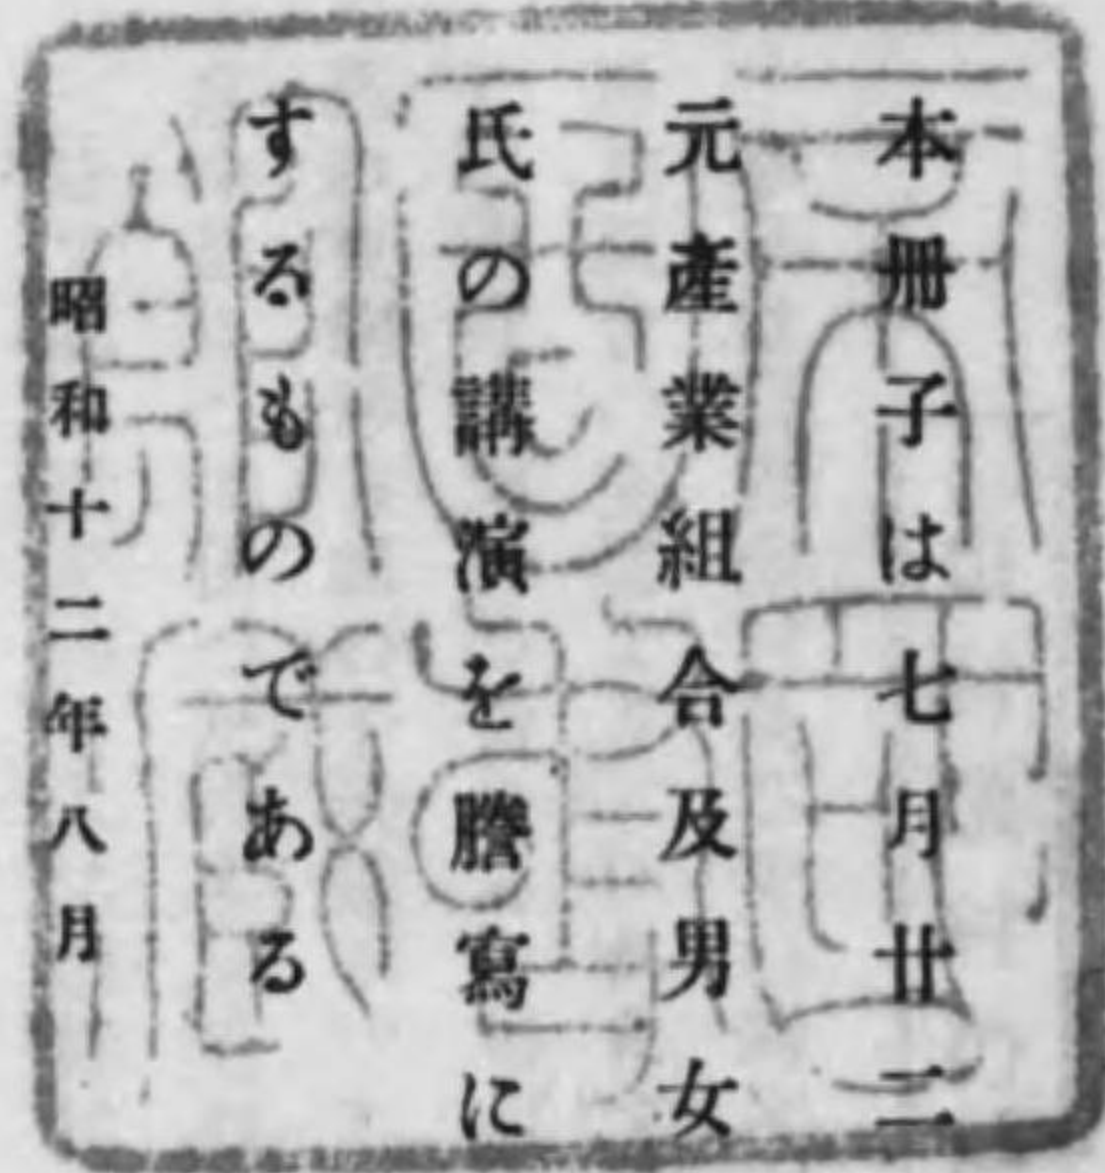 本冊子は七月廿二
元產業組合及男女
氏の講演を謄寫に
するものである
昭和十二年八月